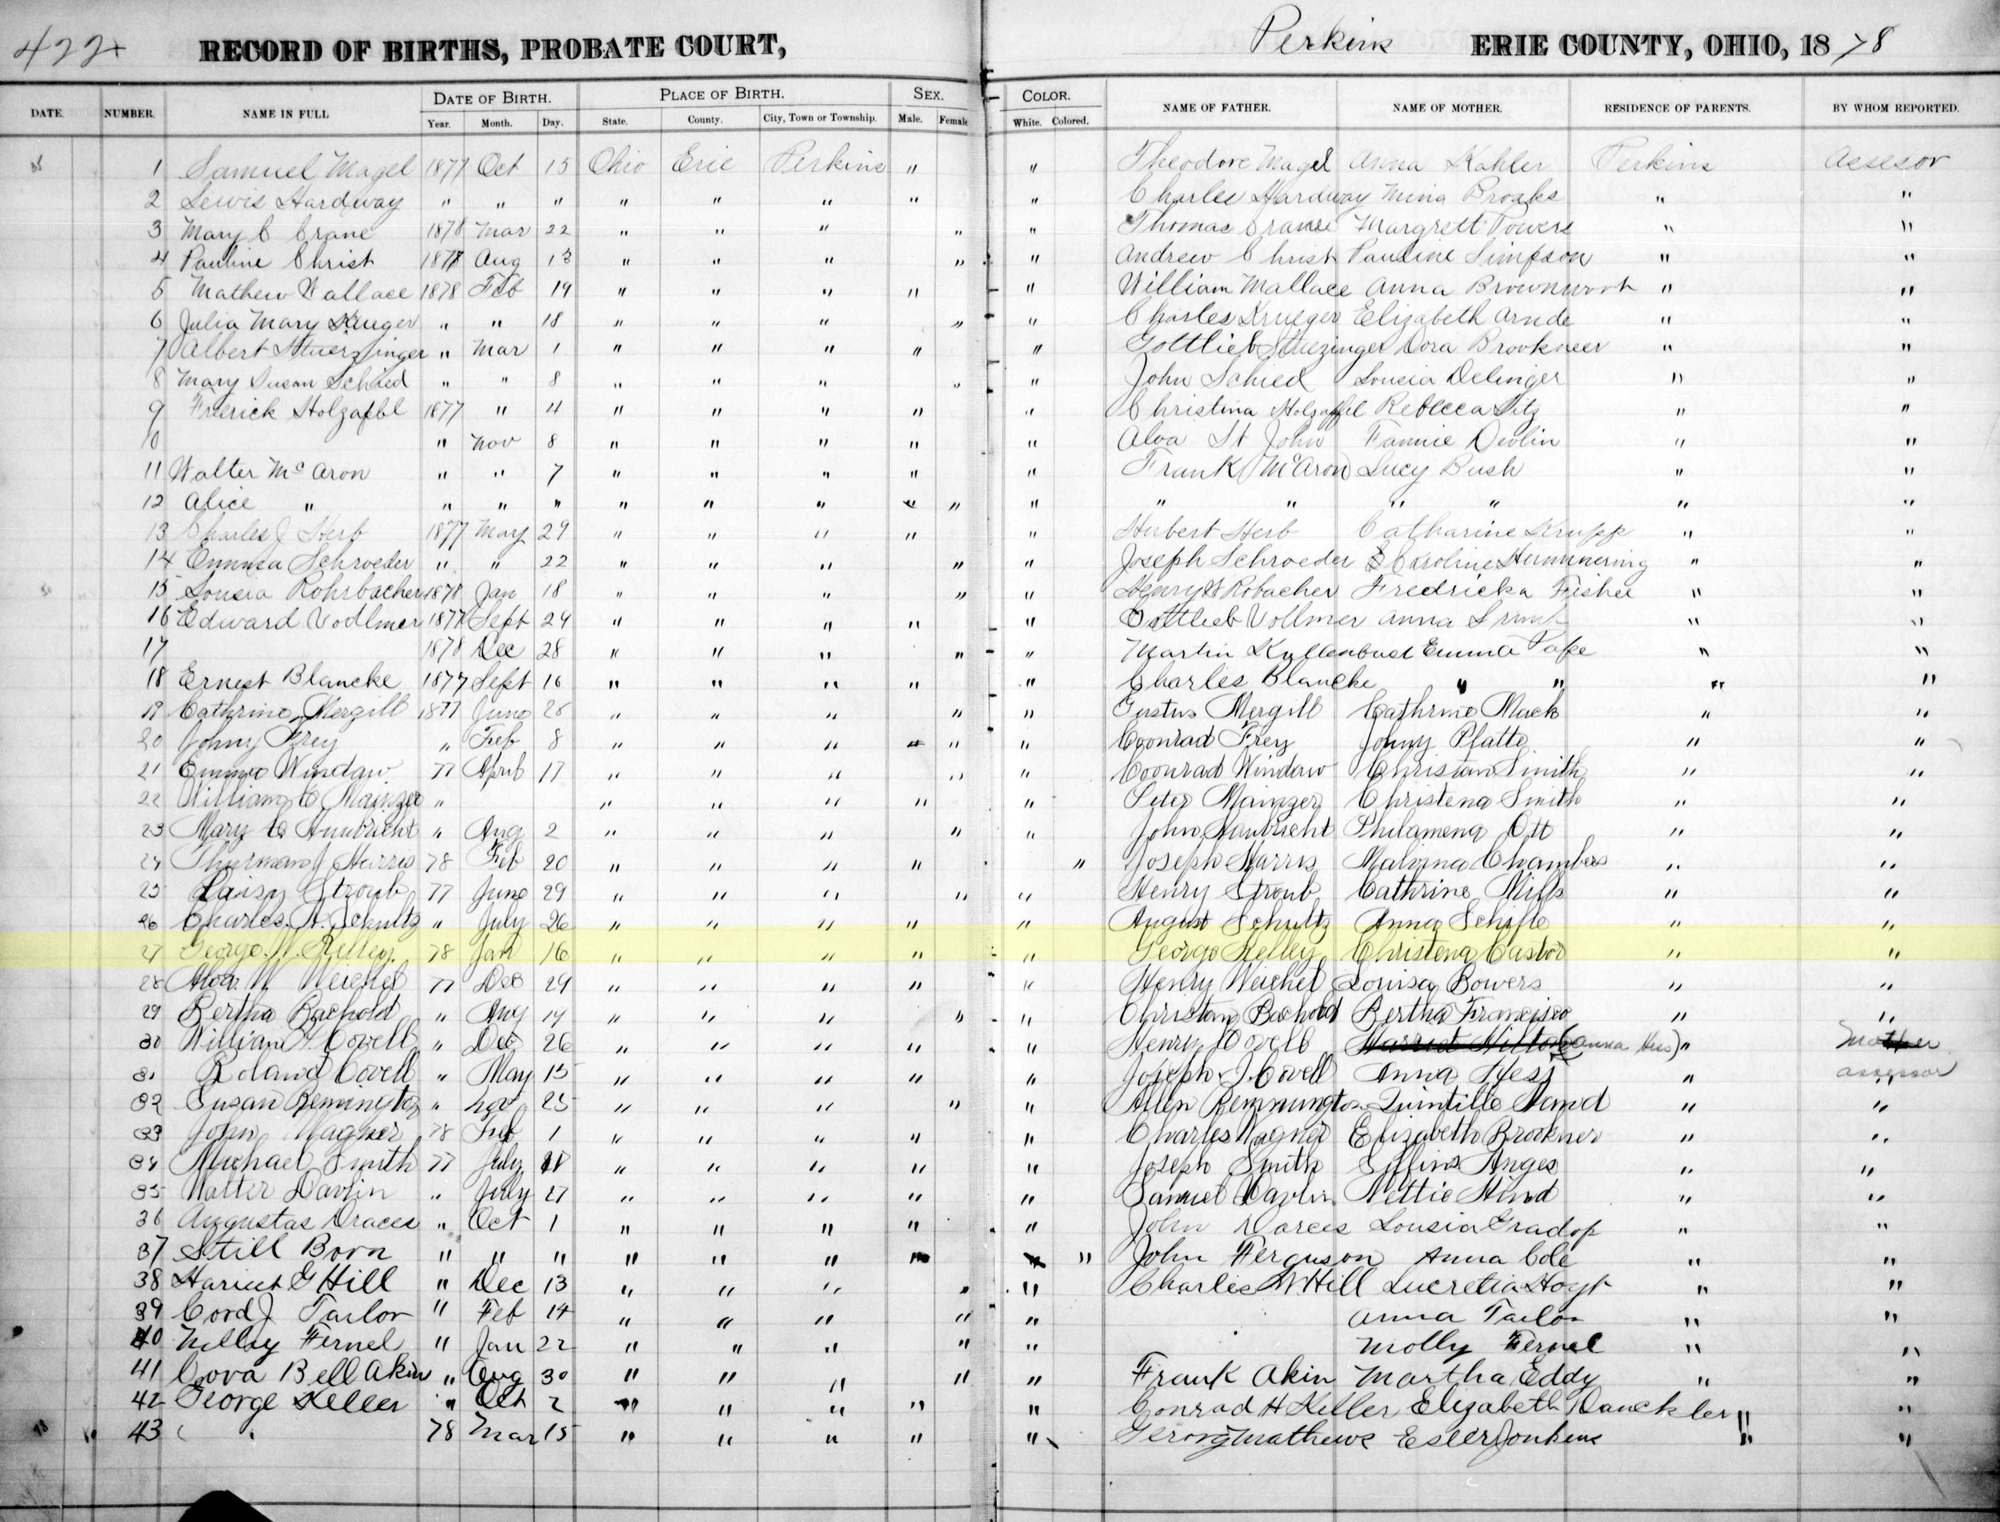 422
RECORD OF BIRTHS, PROBATE COURT, Perkins ERIE COUNTY, OHIO, 1878
DATE OF BIRTH. PLACE OF BIRTH. SEX. COLOR.
DATE. NUMBER. NAME IN FULL Year. Month. Day. State. County. City, Town or Township. Male. Female White. Colored. NAME OF FATHER. NAME OF MOTHER. RESIDENCE OF PARENTS. BY WHOM REPORTED.
1 Samuel Magel 1877 Oct 15 Ohio Erie Perkins " " Theodore Magel Anna Kahler Perkins Assesor
2 Lewis Hardway " " " " " " " " Charles Hardway Mina Broaks " "
3 Mary C Crane 1878 Mar 22 " " " " " Thomas Crane Margrett Powers " "
4 Pauline Christ 1877 Aug 13 " " " " " Andrew Christ Pauline Simpson " "
5 Mathew Wallace 1878 Feb 19 " " " " " William Mallace Anna " "
6 Julia Mary Kruger " " 18 " " " " " Charles Krueger Elizabeth Arnde " "
7 Albert Stuerzinger " Mar 1 " " " " " Gottlieb Stuezinger Dora Brookneer " "
8 Mary Susan Schied " " 8 " " " " " John Schied Lousia Delinger " "
9 Frierick Holzapbl 1877 " 4 " " " " " Christina Holzaffel Rebecca " "
0 " Nov 8 " " " " " Alva St John Fannie Devlin " "
11 Walter Mc Aron " " 7 " " " " " Frank McAron Lucy Bush " "
12 Alice " " " " " " " " " " " " " " "
13 Charles J Herb 1877 May 29 " " " " " Hubert Herb Catharine Krupp " "
14 Emma Schroeder " " 22 " " " " " Joseph Schroeder Caroline Hummering " "
15 Lousia Rohrbacher 1878 Jan 18 " " " " " Henry Robacher Fredricka Fisher " "
16 Edward Vodlmer 1877 Sept 24 " " " " " Gottlieb Vollmer Anna " "
17 1878 Dec 28 " " " " " Martin Emma Pape " "
18 Ernest Blancke 1877 Sept 16 " " " " " Charles Blancke " " " "
19 Cathrine Mergill 1877 June 28 " " " " " Justus Mergill Cathrine Mack " "
20 Johny Frey " Feb 8 " " " " " Coonrad Frey Johny Platte " "
21 Emma Windaw 77 April 17 " " " " " Coonrad Windaw Christian Smith " "
22 William C Mainzer " " " " " " Peter Mainzer Christena Smith " "
23 Mary Humbricht " Aug 2 " " " " " John Humbricht Philamena Ott " "
24 Thurman J Harris 78 Feb 20 " " " " " Joseph Harris Malvina Chambers " "
25 Daisy Stroub 77 June 29 " " " " " Henry Stroub Cathrine Mills " "
26 Charles A. Schultz " July 26 " " " " " August Schultz Anna Schifle " "
27 George W. Kelley 78 Jan 16 " " " " " George Kelley Christena Castor " "
28 W. Weichel 77 Dec 29 " " " " " Henry Weichel Louisa Bowers " "
29 Bertha Bachold " Aug 14 " " " " " Christian Bachold Bertha Francisco " "
30 William H Covell " Dec 26 " " " " " Henry Covell Harriet Hilton (Anna Hess) " Mother
31 Roland Covell " May 15 " " " " " Joseph J. Covell Anna " assessor
32 Susan Remington " Nov 25 " " " " " Allen Remmington Quintille Hand " "
33 John Wagner 78 Feb 1 " " " " " Charles Wagner Elizabeth Brockner " "
34 Michael Smith 77 July " " " " " Joseph Smith Anges " "
35 Walter Davlin " July 27 " " " " " Samuel Davlin Nettie Hind " "
36 Augustas Draces " Oct 1 " " " " " John Darces Lousia Gradop " "
37 Still Born " " " " " " " John Ferguson Anna Cole " "
38 Hariet G Hill " Dec 13 " " " " " Charles W Hill Lucretia Hoyt " "
39 Cord J Tailor " Feb 14 " " " " " Anna Tailor " "
40 Nellsy Fernel " Jan 22 " " " " " Molly Fernel " "
41 Cova Bell Akin " Aug 30 " " " " " Frank Akin Martha Eddy " "
42 George Keller " Oct 2 " " " " " Conrad H Keller Elizabeth Danckler " "
43 78 Mar 15 " " " " " Gerorg Mathews Ester Jonkins " "